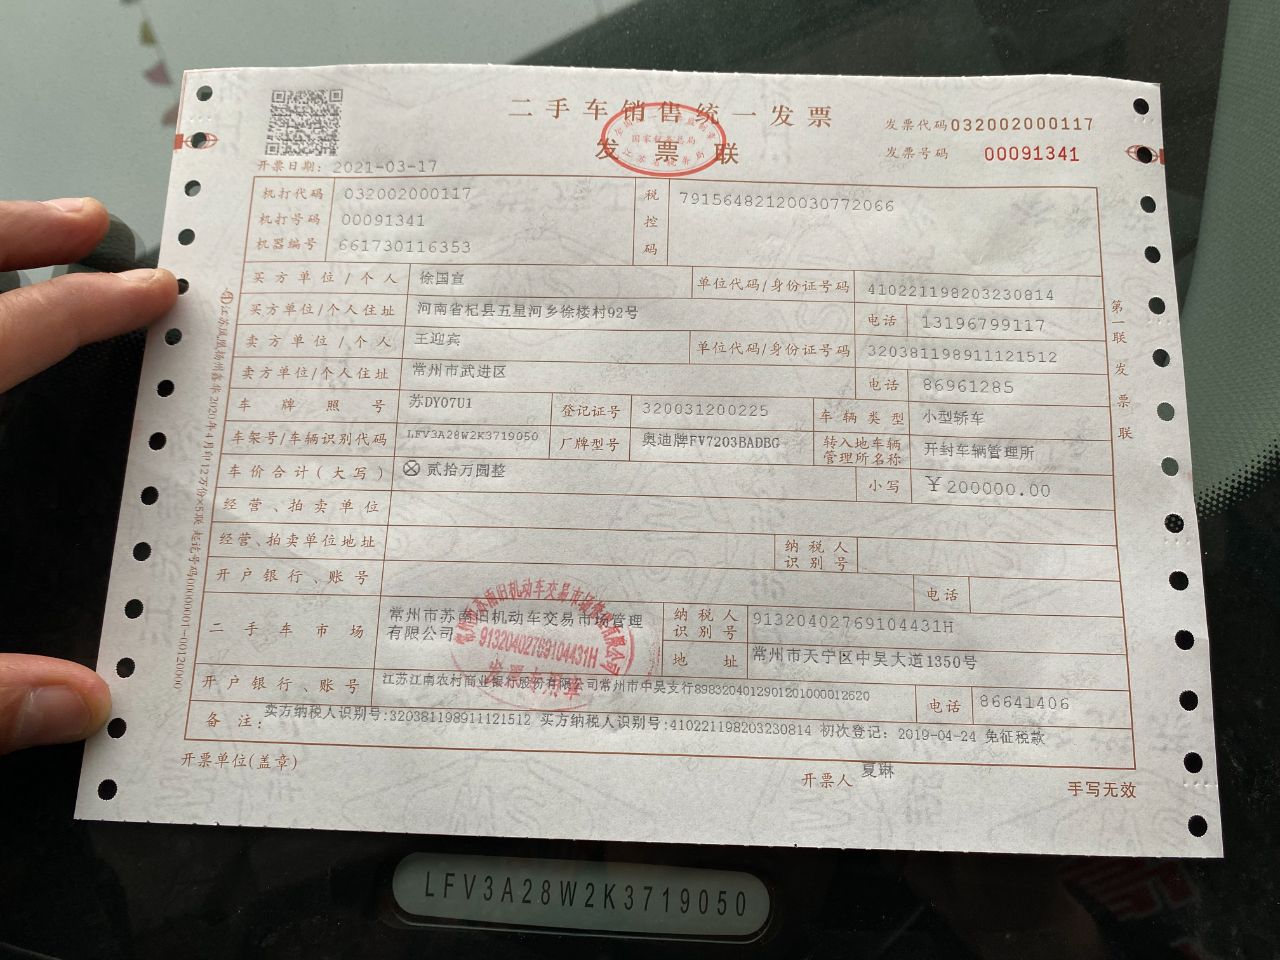 二手车销售统一发票
发票联
发票代码 032002000117
发票号码 00091341
开票日期: 2021-03-17
机打代码 032002000117
机打号码 00091341
机器编号 661730116353
税控码 79156482120030772066
买方单位/个人 徐国宣 单位代码/身份证号码 410221198203230814
买方单位/个人住址 河南省杞县五星河乡徐楼村92号 电话 13196799117
卖方单位/个人 王迎宾 单位代码/身份证号码 320381198911121512
卖方单位/个人住址 常州市武进区 电话 86961285
车牌照号 苏DY07U1 登记证号 320031200225 车辆类型 小型轿车
车架号/车辆识别代码 LFV3A28W2K3719050 厂牌型号 奥迪牌FV7203BADBG 转入地车辆管理所名称 开封车辆管理所
车价合计(大写) ⊗ 贰拾万圆整 小写 ￥200000.00
经营、拍卖单位
经营、拍卖单位地址 纳税人识别号
开户银行、账号 电话
二手车市场 常州市苏南旧机动车交易市场管理有限公司 纳税人识别号 91320402769104431H
地址 常州市天宁区中吴大道1350号
开户银行、账号 江苏江南农村商业银行股份有限公司常州市中吴支行8983204012901201000012620 电话 86641406
备注: 卖方纳税人识别号:320381198911121512 买方纳税人识别号:410221198203230814 初次登记: 2019-04-24 免征税款
开票单位(盖章) 开票人 夏琳 手写无效
第一联 发票联
国家税务总局
91320402769104431H
发票专用章
LFV3A28W2K3719050